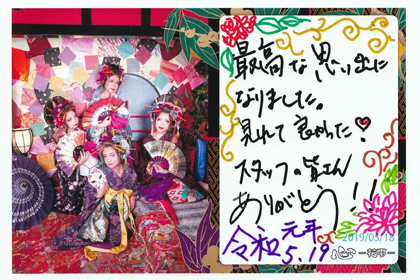 最高な思い出に
なりました。
見れて良かった♡
スタッフの皆さん
ありがとう!!
令和元年
5.19
2019/05/18
心 -花雫-